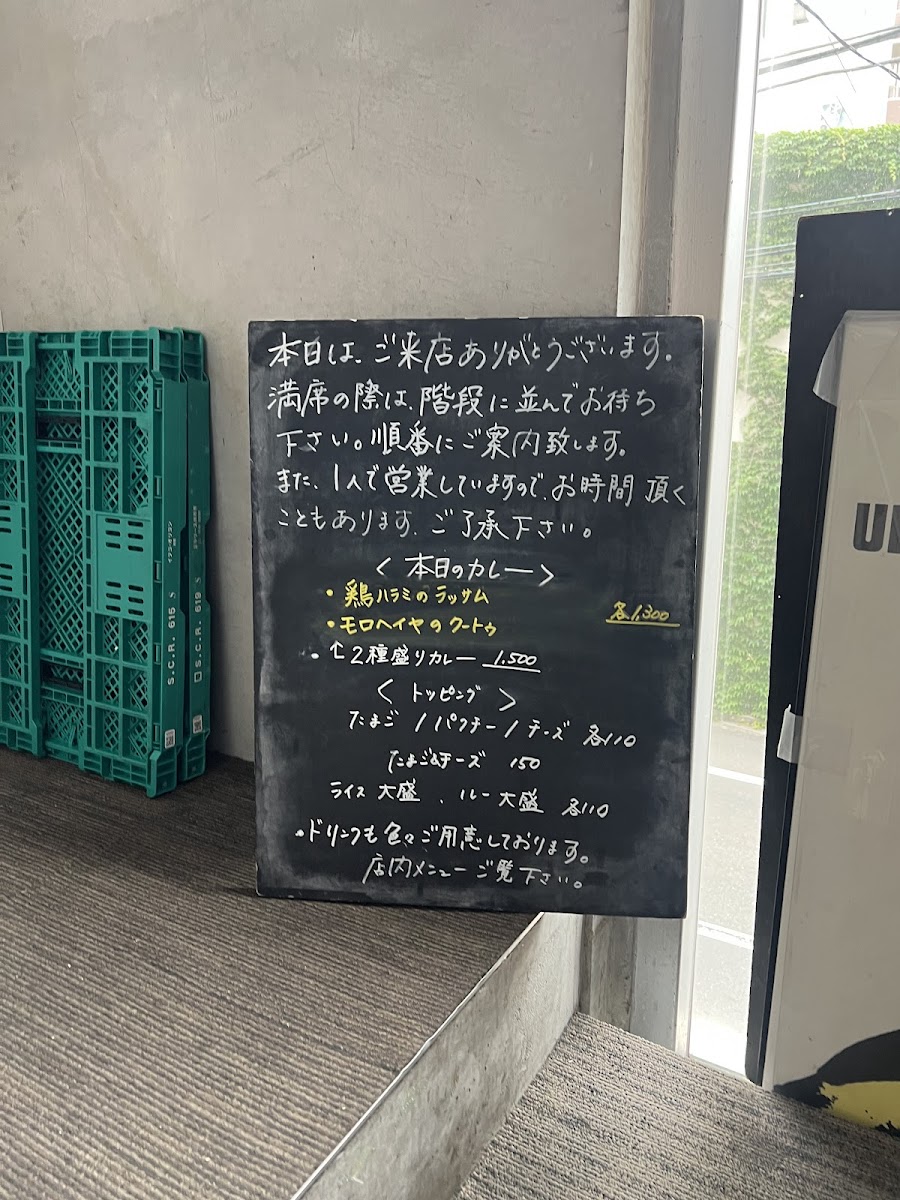 本日は、ご来店ありがとうございます。
満席の際は、階段に並んでお待ち
下さい。順番にご案内致します。
また、1人で営業していますので、お時間頂く
こともあります、ご了承下さい。
<本日のカレー>
・鶏ハラミのラッサム
各1,300
・モロヘイヤのクートゥ
・↑2種盛りカレー 1,500
<トッピング>
たまご/パクチー/チーズ 各110
たまご&チーズ 150
ライス大盛、ルー大盛 各110
・ドリンクも色々ご用意しております。
店内メニューご覧下さい。
S.C.R. 615 S
S.C.R. 619 S